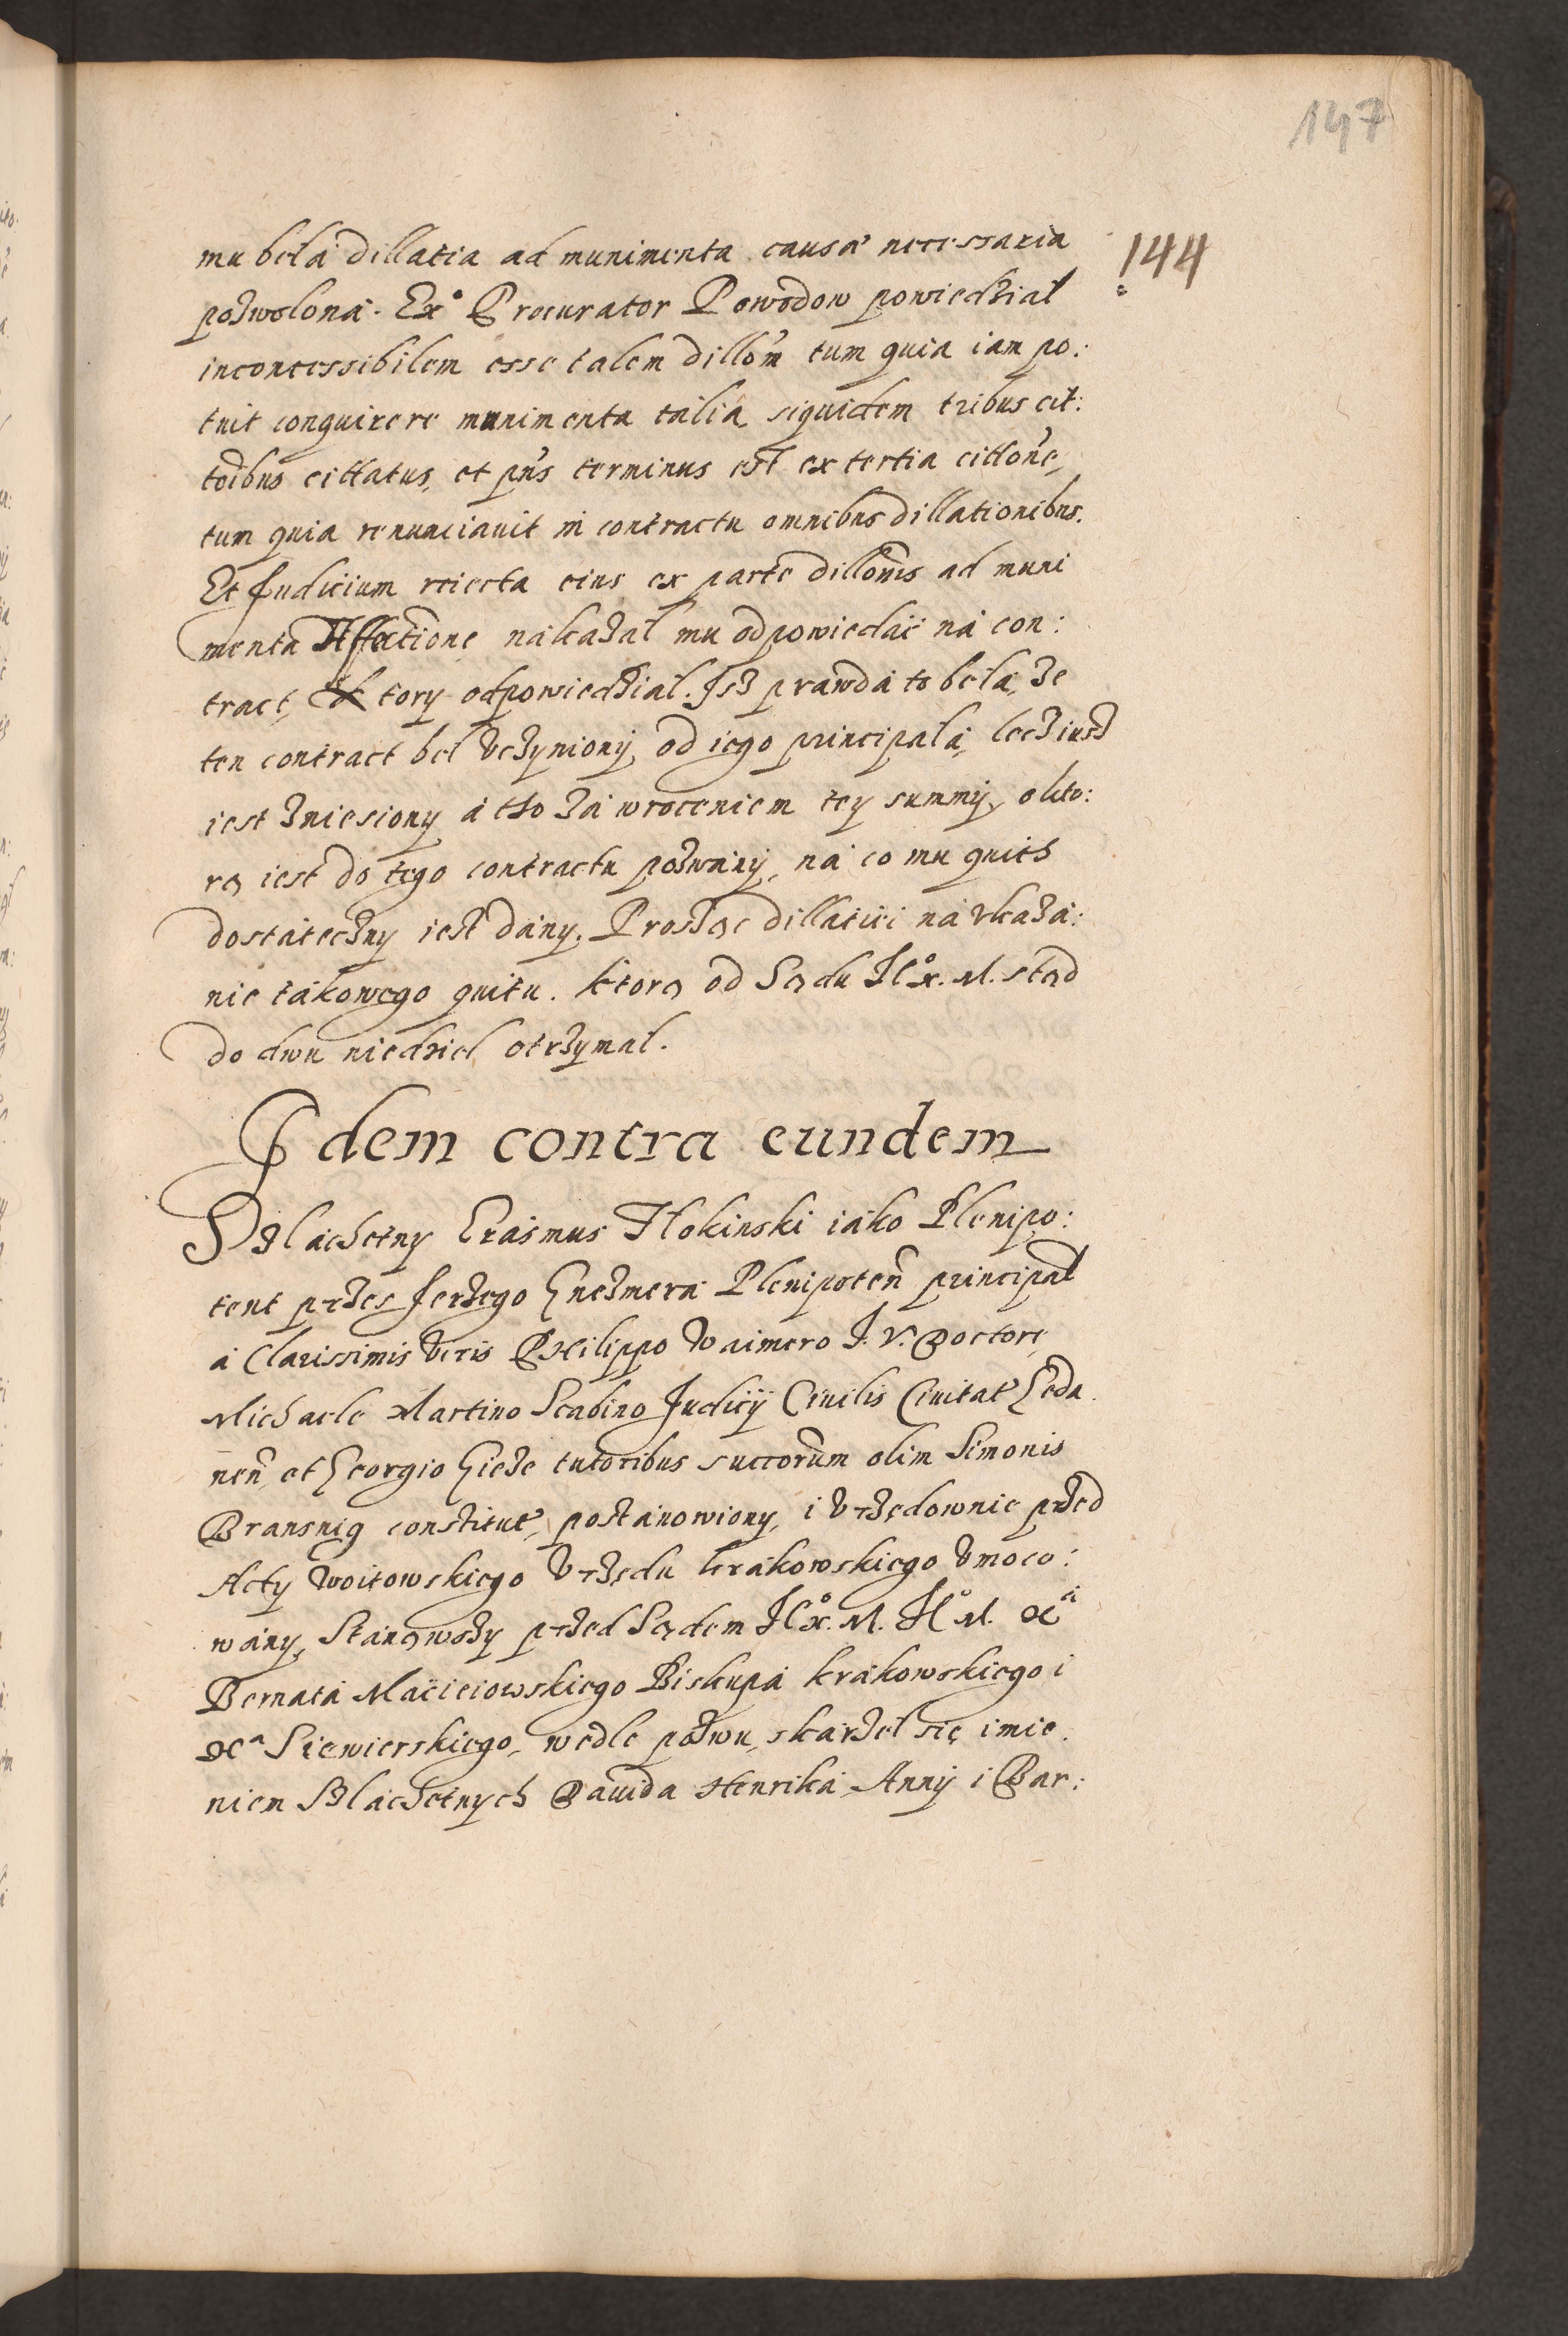 147
144
mu bela dillatia ad munimenta causæ necessaria
pozwolona. Exº Procurator Powodow powiedzial
inconcessibilem esse talem dillom̃ tum quia iam po:
tuit conquirere munimenta talia siquidem tribus cit:
toibus cittatus, et pñs terminus est ex tertia cittone,
tum quia renunciauit in contractu omnibus dillationibus.
Et Judicium reiecta eius ex parte dillonis ad muni
menta natione nakazal mu odpowiedać na con:
tract, Ktory odpowiedzial. Jsz prawda to bela, ze
ten contract bel vczyniony od iego principala, lecz iusz
iest zniesiony a tho za wroceniem tey summy, okto:
rą iest do tego contractu pozwany, na co mu quith
dostateczny iest dany. Prosząc dillatiei na vkaza:
nie takowego quitu. ktorą od Sądu Jº x. M. stąd
do dwu niedziel otrzymal.
Idem contra eundem
Szlachetny Erasmus Tlokinski iako Plenipo:
tent przes Jerzego Gnezmera Plenipoteñ principal
a Clarissimis Viris Philippo Waimero J. V. Doctore,
Michaele Martino Scabino Judicij Ciuilis Ciuitat Geda
neñ, et Georgio Gieze tutoribus succorum olim Simonis
Bransnig constitut, postanowiony, i vrzędownie przed
Acty Woitowskiego Vrzędu krakowskiego vmoco:
wany, Stanąwszy przed Sądem Jº x. M. Jº M. Xª
Bernata Macieiowskiego Biskupa krakowskiego i
Xª Siewierskiego, wedle pozwu, skarzel się imie
niem Slachetnych Dauida Henrika, Anny i Bar: